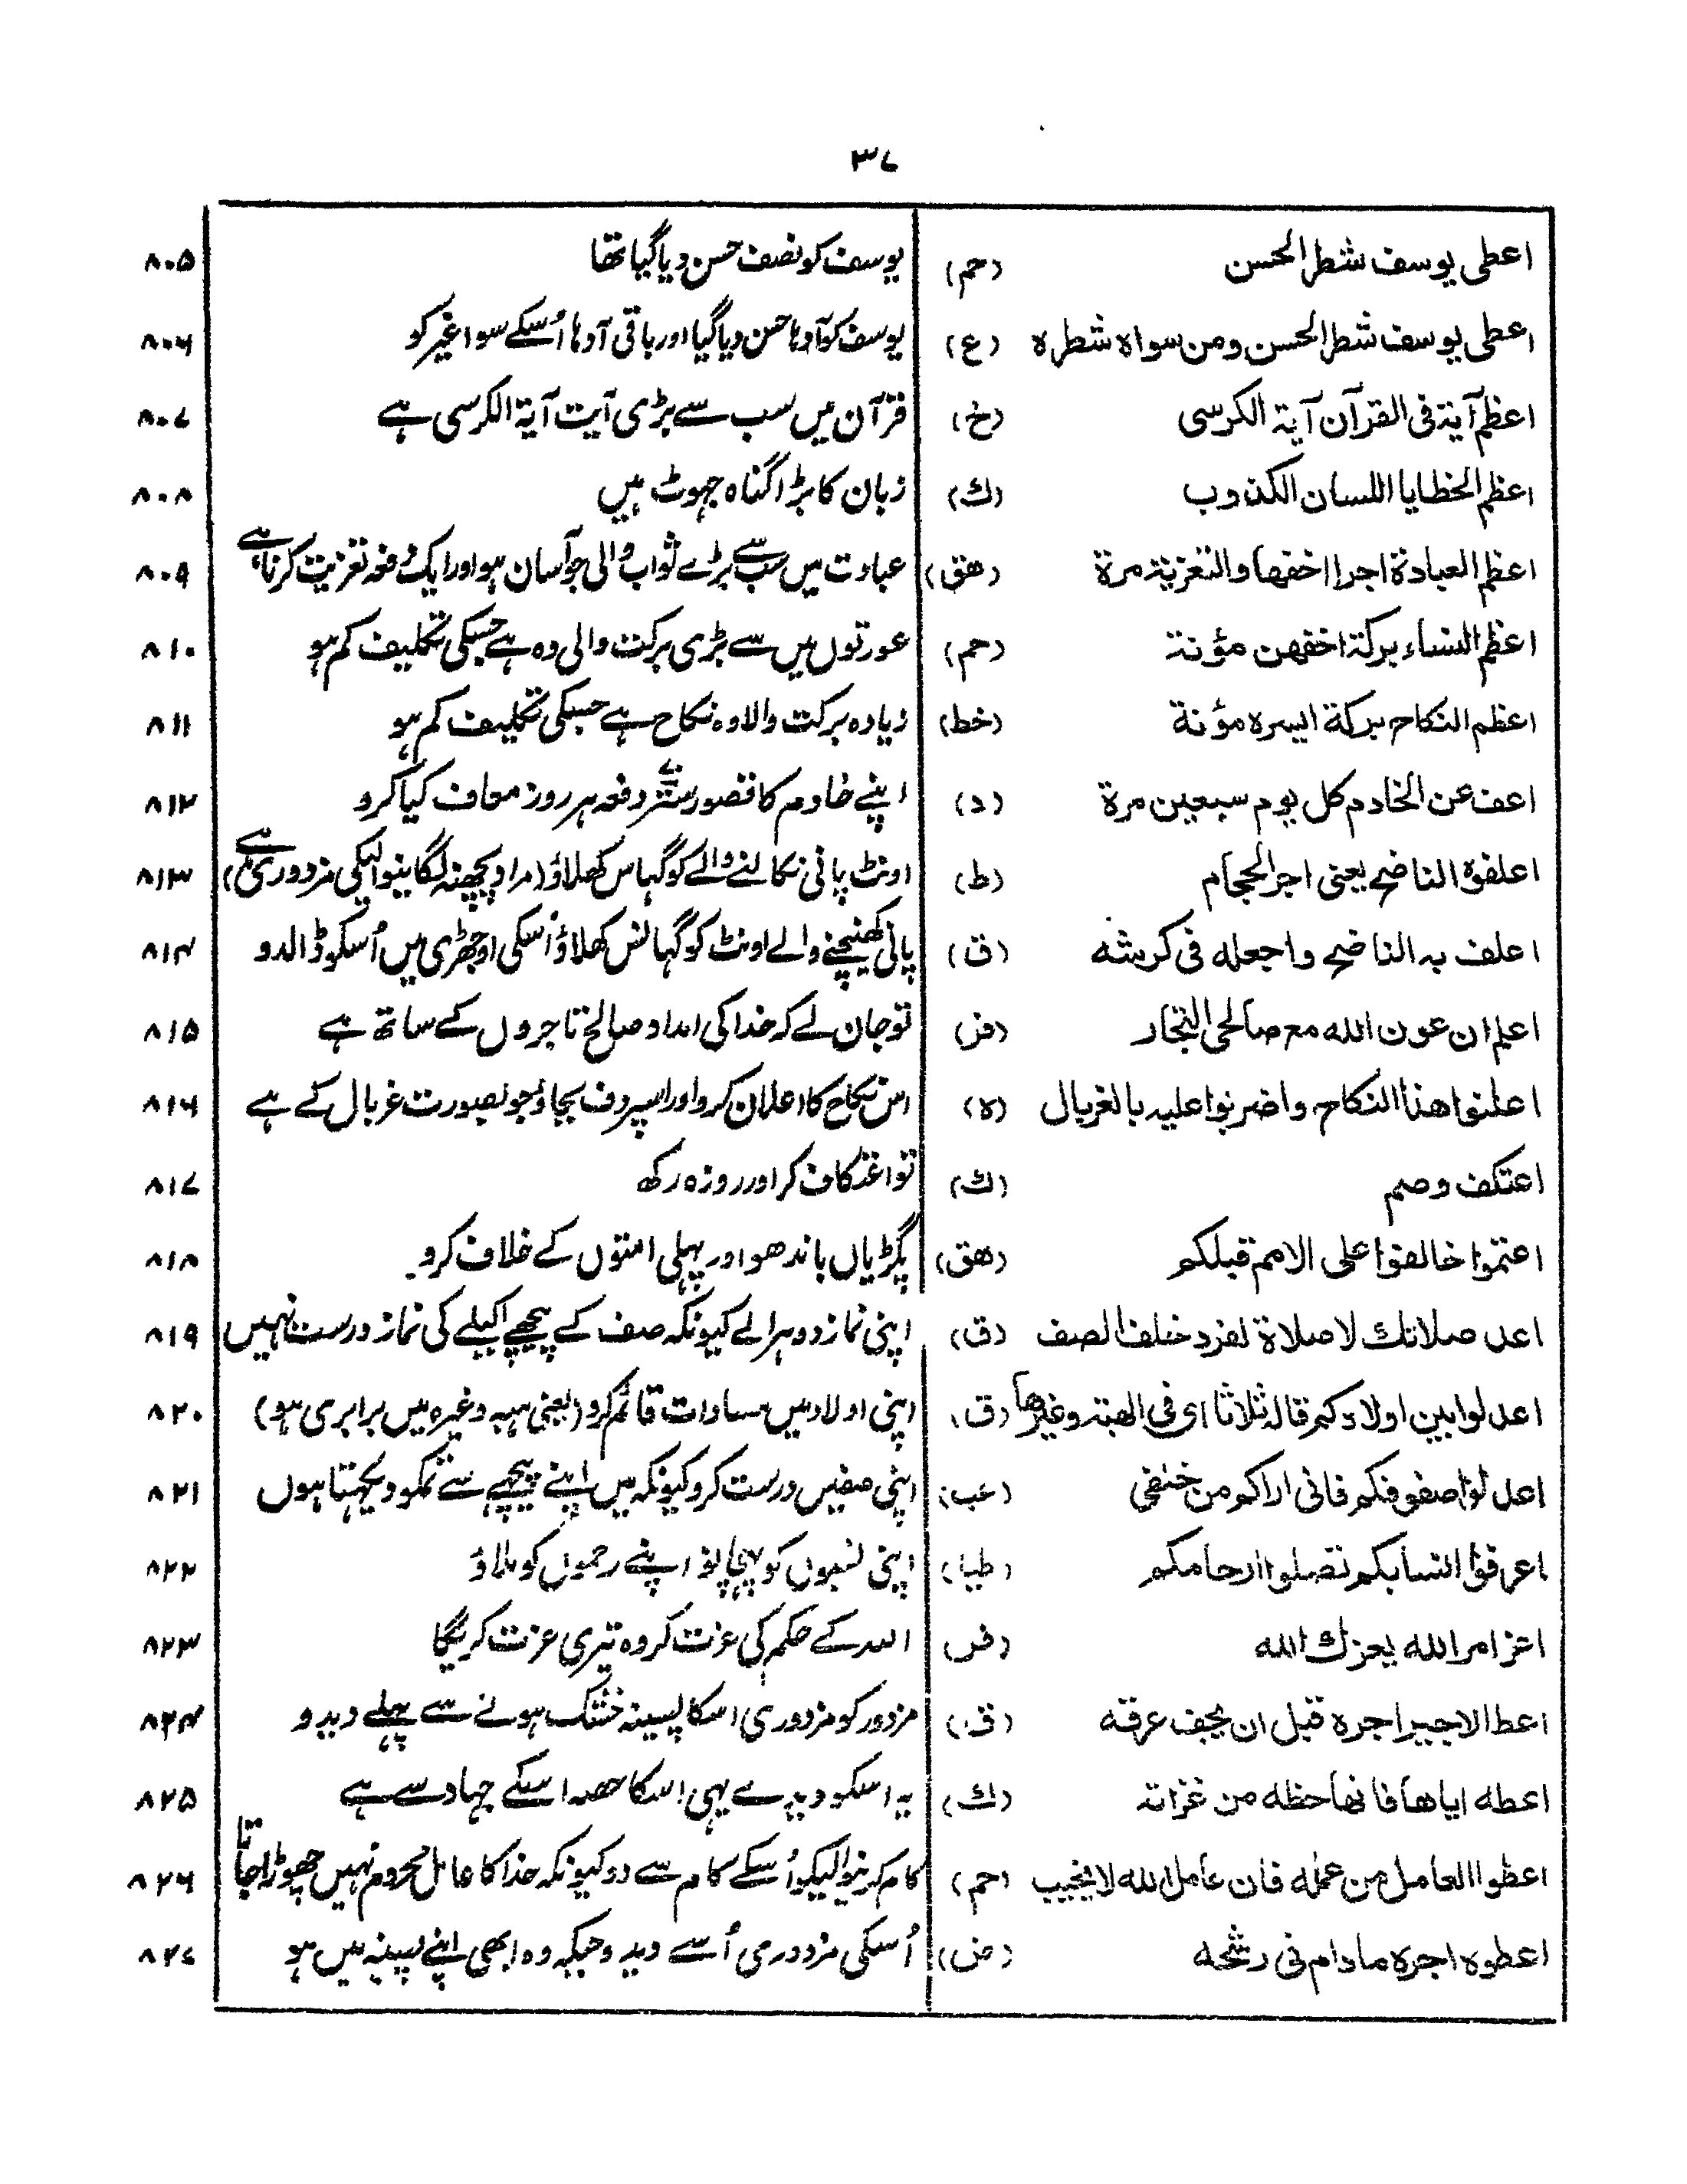 ۳۷
اعطی یوسف شطر الحسن (حم) یوسف کو نصف حسن دیا گیا تھا ۸۰۵
اعطی یوسف شطر الحسن ومن سواہ شطرہ (ع) یوسف کو آدہا حسن دیا گیا اور باقی آدہا اُسکے سوا غیر کو ۸۰۶
اعظم آیة فی القرآن آیة الکرسی (خ) قرآن میں سب سے بڑی آیت آیة الکرسی ہے ۸۰۷
اعظم الخطایا اللسان الکذوب (ك) زبان کا بڑا گناہ جہوٹ ہیں ۸۰۸
اعظم العبادة اجرا اخفها والتعزیة مرة (هق) عبادت میں سب سے بڑے ثواب والی جو آسان ہو اور ایک دفعہ تعزیت کرنا ہے ۸۰۹
اعظم النساء برکة اخفهن مؤنة (حم) عورتوں میں سے بڑی برکت والی وہ ہے جسکی تکلیف کم ہو ۸۱۰
اعظم النکاح برکة ایسرہ مؤنة (خط) زیادہ برکت والا وہ نکاح ہے جسکی تکلیف کم ہو ۸۱۱
اعف عن الخادم کل یوم سبعین مرة (د) اپنے خادم کا قصور ستر دفعہ ہر روز معاف کیا کرو ۸۱۲
اعلفوہ الناضح یعنی اجر الحجام (ط) اونٹ پانی نکالنے والے کو گہاس کھلاؤ (مراد پچھنہ لگانیوالیکی مزدوری ہے) ۸۱۳
اعلف به الناضح واجعله فی کرشه (ق) پانی کھینچنے والے اونٹ کو گہانس کھلاؤ اُسکی اوجھڑی میں اُسکو ڈالدو ۸۱۴
اعلم ان عون الله مع صالحی التجار (فر) تو جان لے کہ خدا کی امداد صالح تاجروں کے ساتھ ہے ۸۱۵
اعلنوا هذا النکاح واضربوا علیه بالغربال (ہ) اس نکاح کا اعلان کرو اور اسپر دف بجاؤ جو بصورت غربال کے ہے ۸۱۶
اعتکف وصم (ك) تو اعتکاف کر اور روزہ رکھ ۸۱۷
اعتموا خالفوا علی الامم قبلکم (هق) پگڑیاں باندھو اور پہلی امتوں کے خلاف کرو ۸۱۸
اعد صلاتك لا صلاة لفرد خلف الصف (ق) اپنی نماز دوہرالے کیونکہ صف کے پیچھے اکیلے کی نماز درست نہیں ۸۱۹
اعدلوا بین اولادکم قاله ثلاثا ای فی الهبة وغیرها (ق) اپنی اولاد میں مساوات قائم کرو (یعنی ہبہ وغیرہ میں برابری ہو) ۸۲۰
اعدلوا صفوفکم فانی اراکم من خلفی (عب) اپنی صفیں درست کرو کیونکہ میں اپنے پیچھے سے تمکو دیکہتا ہوں ۸۲۱
اعرفوا انسابکم تصلوا ارحامکم (طیا) اپنی نسبوں کو پہچانو اپنے رحموں کو ملاؤ ۸۲۲
اعز امر الله یعزك الله (فر) اللہ کے حکم کی عزت کر وہ تیری عزت کریگا ۸۲۳
اعط الاجیر اجرہ قبل ان یجف عرقه (ق) مزدور کو مزدوری اسکا پسینہ خشک ہونے سے پہلے دیدو ۸۲۴
اعطه ایاها فانها حظه من غزاته (ك) یہ اسکو دیدے یہی اسکا حصہ اسکے جہاد سے ہے ۸۲۵
اعطوا العامل من عمله فان عامل الله لا یخیب (حم) کام کرنیوالیکو اُسکے کام سے دو کیونکہ خدا کا عامل محروم نہیں چھوڑا جاتا ۸۲۶
اعطوہ اجرہ مادام فی رشحه (ض) اُسکی مزدوری اُسے دیدو جبکہ وہ ابھی اپنے پسینہ میں ہو ۸۲۷